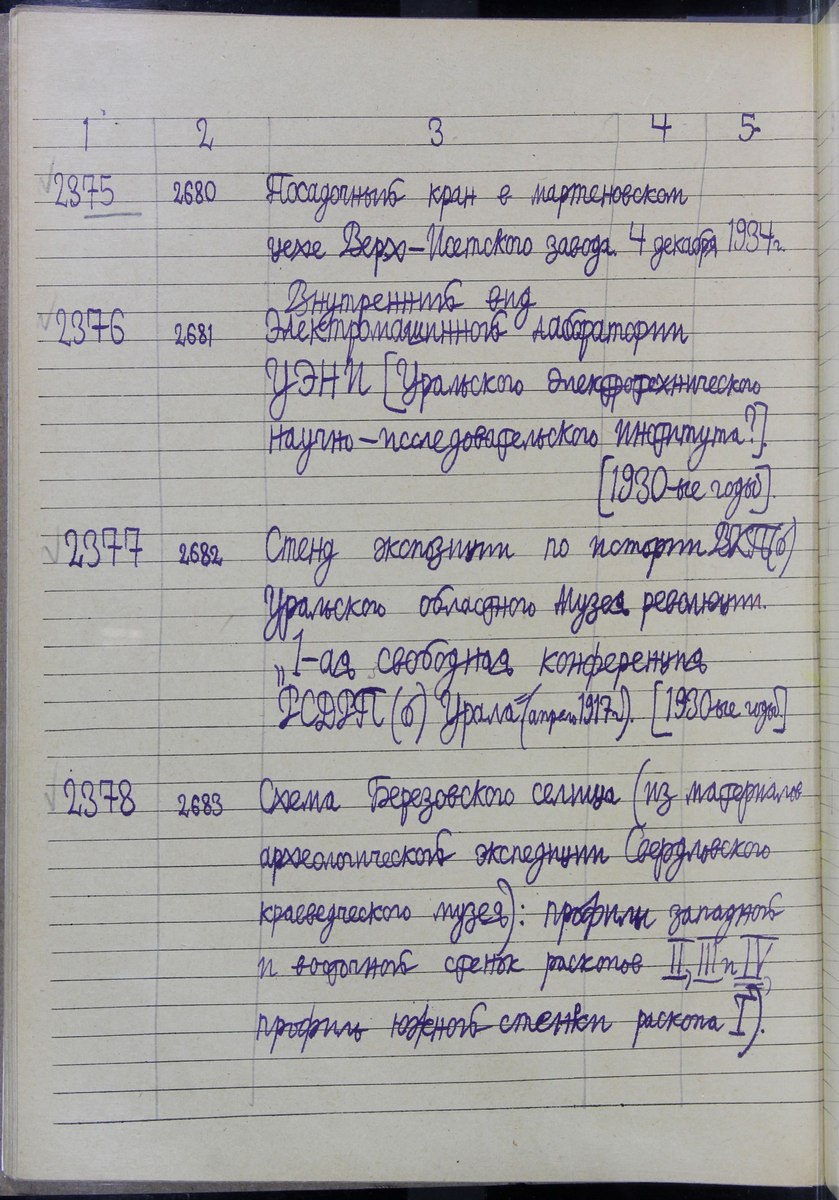 1 2 3 4 5
2375 2680 Посадочный кран в мартеновском
цехе Верх-Исетского завода. 4 декабря 1934 г.
Внутренний вид
2376 2681 Электромашинной лаборатории
УЭНИ [Уральского электротехнического
научно-исследовательского института?].
[1930-ые годы].
2377 2682 Стенд экспозиции по истории ВКП(б)
Уральского областного Музея революции.
„1-ая свободная конференция
РСДРП(б) Урала" (апрель 1917 г.). [1930-ые годы]
2378 2683 Схема Березовского селища (из материалов
археологической экспедиции Свердловского
краеведческого музея): профили западной
и восточной стенок раскопов II, III и IV,
профиль южной стенки раскопа I).